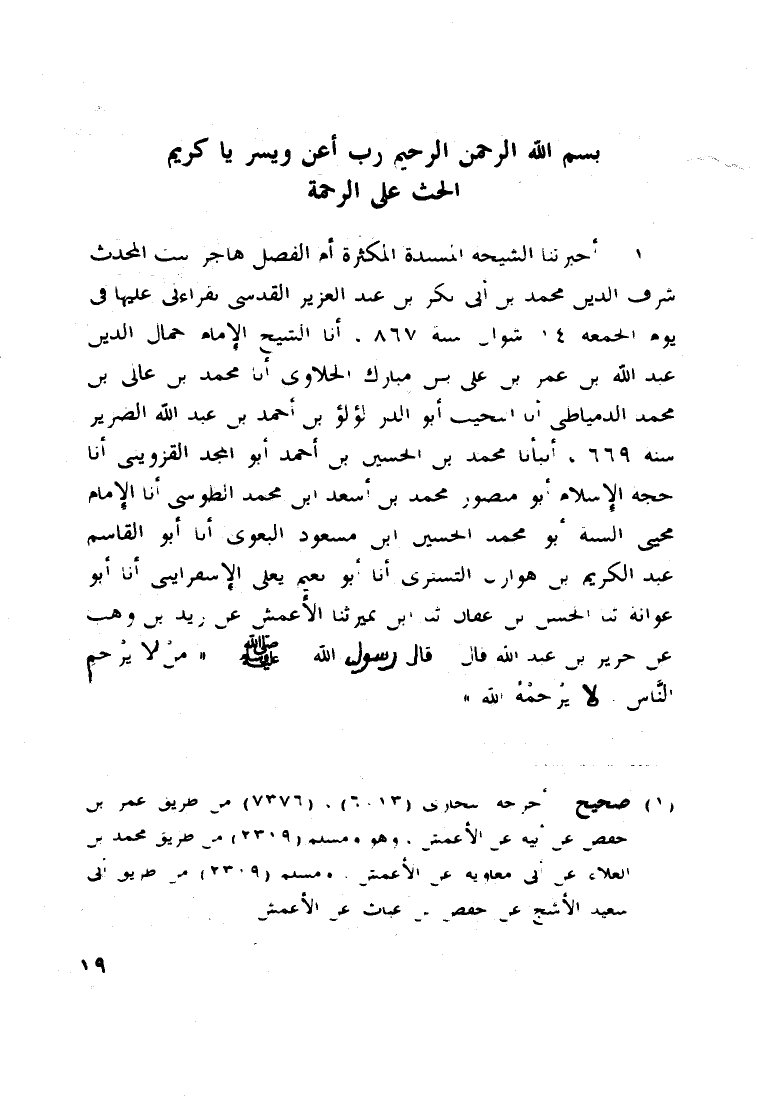 بسم الله الرحمن الرحيم رب أعن ويسر يا كريم
الحث على الرحمة
١ أخبرتنا الشيخه المسندة المكثرة أم الفضل هاجر بنت المحدث
شرف الدين محمد بن أبى بكر بن عبد العزيز القدسى بقراءتى عليها فى
يوم الجمعه ١٤ شوال سنة ٨٦٧ . أنا الشيخ الإمام جمال الدين
عبد الله بن عمر بن على بن مبارك الحلاوى أنا محمد بن غالى بن
محمد الدمياطى أنا النجيب أبو الدر لؤلؤ بن أحمد بن عبد الله الضرير
سنه ٦٦٩ . أنبأنا محمد بن الحسين بن أحمد أبو المجد القزوينى أنا
حجه الإسلام أبو منصور محمد بن أسعد ابن محمد الطوسى أنا الإمام
محيى السنة أبو محمد الحسين ابن مسعود البغوى أنا أبو القاسم
عبد الكريم بن هوازن التسترى أنا أبو نعيم يعلى الإسفراينى أنا أبو
عوانة ثنا الحسن بن عفان ثنا ابن نميرثنا الأعمش عن زيد بن وهب
عن جرير بن عبد الله قال قال رسول الله ﷺ « منْ لا يرْحم
النَّاس . لا يرْحمْهُ الله »
(١) صحيح أخرجه البخارى (٦٠١٣) . (٧٣٧٦) من طريق عمر بن
حفص عن أبيه عن الأعمش . وهو ومسلم (٢٣٠٩) من طريق محمد بن
العلاء عن أبى معاويه عن الأعمش . ومسلم (٢٣٠٩) من طريق أبى
سعيد الأشج عن حفص بن غياث عن الأعمش
١٩